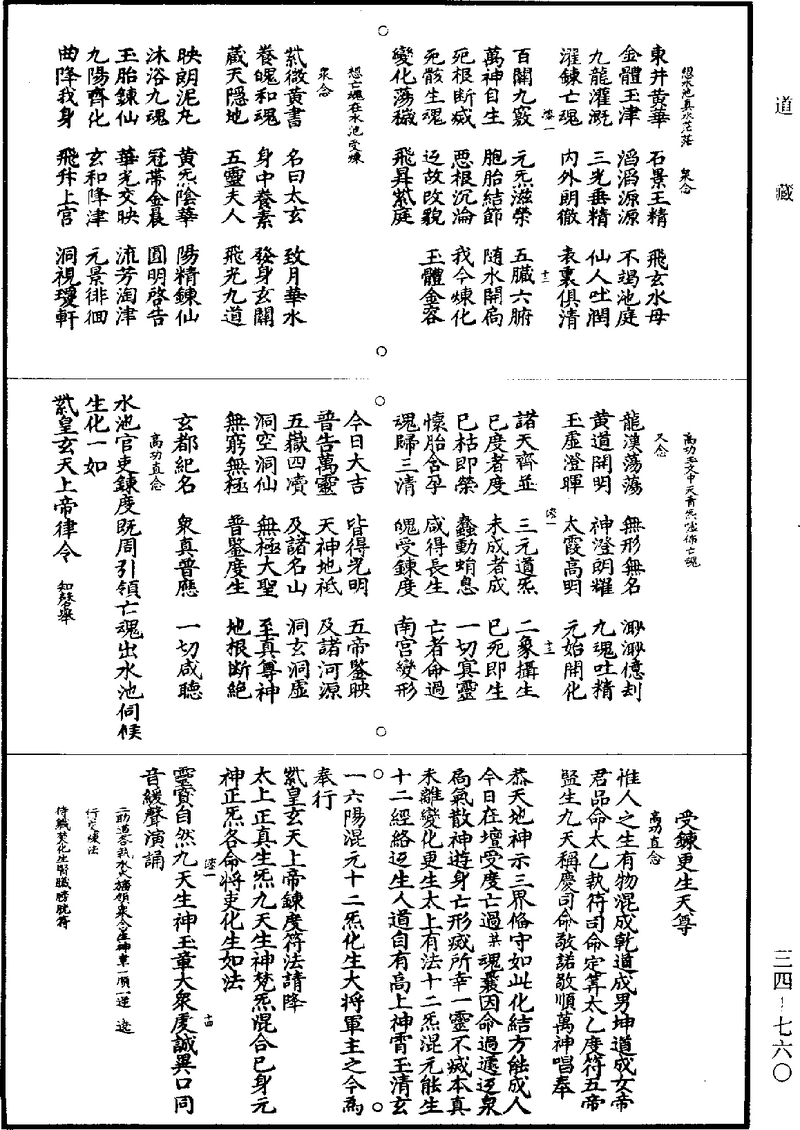 道藏
想水池真水茫茫 衆念
東井黃華 石景玉精 飛玄水母
金體玉津 滔滔源源 不竭池庭
九龍灌溉 三光垂精 仙人吐潤
濯鍊亡魂 內外朗徹 表裏俱清
十二
百關九竅 元炁滋榮 五臟六腑
萬神自生 胞胎結節 隨水開扃
死根斷滅 惡根沉淪 我今煉化
死骸生魂 返故改貌 玉體金容
變化蕩穢 飛昇紫庭
想亡魂在水池受煉
衆念
紫微黃書 名曰太玄 致月華水
養魄和魂 身中養素 發身玄關
藏天隱地 五靈夫人 飛光九道
映朗泥丸 黃炁陰華 陽精鍊仙
沐浴九魂 冠帶金晨 圓明啓告
玉胎鍊仙 華光交映 流芳淘津
九陽齊化 玄和降津 元景徘徊
曲降我身 飛升上宮 洞視瓊軒
高功玉文中天青炁噓佈亡魂
又念
龍漢蕩蕩 無形無名 渺渺億刦
黃道開明 神澄朗耀 九魂吐精
玉虛澄暉 太霞高明 元始開化
十三
諸天齊並 三元道炁 二象攝生
已度者度 未成者成 已死即生
已枯即榮 蠢動蜎息 一切冥靈
懷胎含孕 咸得長生 亡者命過
魂歸三清 魄受鍊度 南宮變形
今日大吉 皆得光明 五帝鑒映
普告萬靈 天神地祇 及諸河源
五嶽四瀆 及諸名山 洞玄洞虛
洞空洞仙 無極大聖 至真尊神
無窮無極 普鑒度生 地根斷絕
玄都紀名 衆真普應 一切咸聽
高功直念
水池官吏鍊度既周引領亡魂出水池伺候
生化一如
紫皇玄天上帝律令 知磬舉
受鍊更生天尊
高功直念
惟人之生有物混成乾道成男坤道成女帝
君品命太乙執符司命定筭太乙度符五帝
監生九天稱慶司命敬諾敬順萬神唱奉
恭天地神示三界俻守如此化結方能成人
今日在壇受度亡過某魂曩因命過遞返泉
扃氣散神遊身亡形滅所幸一靈不滅本真
未離變化更生太上有法十二炁混元能生
十二經絡返生人道自有高上神霄玉清玄
一六陽混元十二炁化生大將軍主之今為
奉行
紫皇玄天上帝鍊度符法請降
太上正真生炁九天生神梵炁混合巳身元
神正炁各命將吏化生如法
十四
靈寶自然九天生神玉章大衆虔誠異口同
音緩聲演誦
行定煉法
侍職焚化生腎臟膀胱符
三四-七六〇